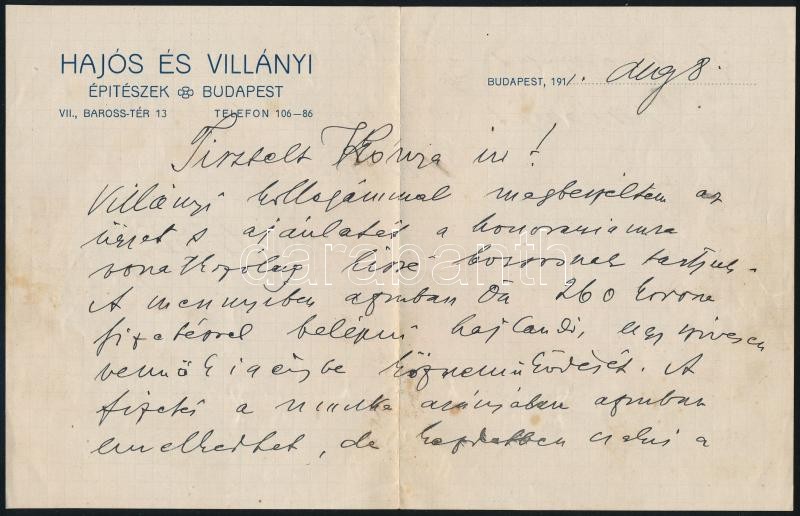 HAJÓS ÉS VILLÁNYI
ÉPITÉSZEK BUDAPEST
VII., BAROSS-TÉR 13 TELEFON 106–86
BUDAPEST, 1911. Aug 8.
Tisztelt Kónya úr!
Villányi kollegámmal megbeszéltem az
ügyet s ajánlatát a honorariumra
vonatkozólag kissé tartjuk.
A mennyiben azonban Ön 260 korona
fizetéssel belépni hajlandó, úgy szivesen
vennők igénybe közremüködését. A
fizetés a munka arányában azonban
emelkedhet, de kezdetben a
darabanth